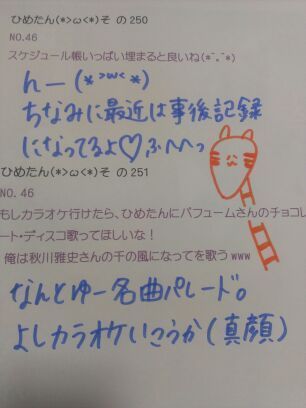 ひめたん(*>ω<*)そ の250
NO.46
スケジュール帳いっぱい埋まると良いね(*^。^*)
んー(*>ω<*)
ちなみに最近は事後記録
になってるよ♡ふへへっ
ひめたん(*>ω<*)そ の251
NO.46
もしカラオケ行けたら、ひめたんにパフュームさんのチョコレ
ート・ディスコ歌ってほしいな！
俺は秋川雅史さんの千の風になってを歌うwww
なんとゆー名曲パレード。
よしカラオケいこうか(真顔)